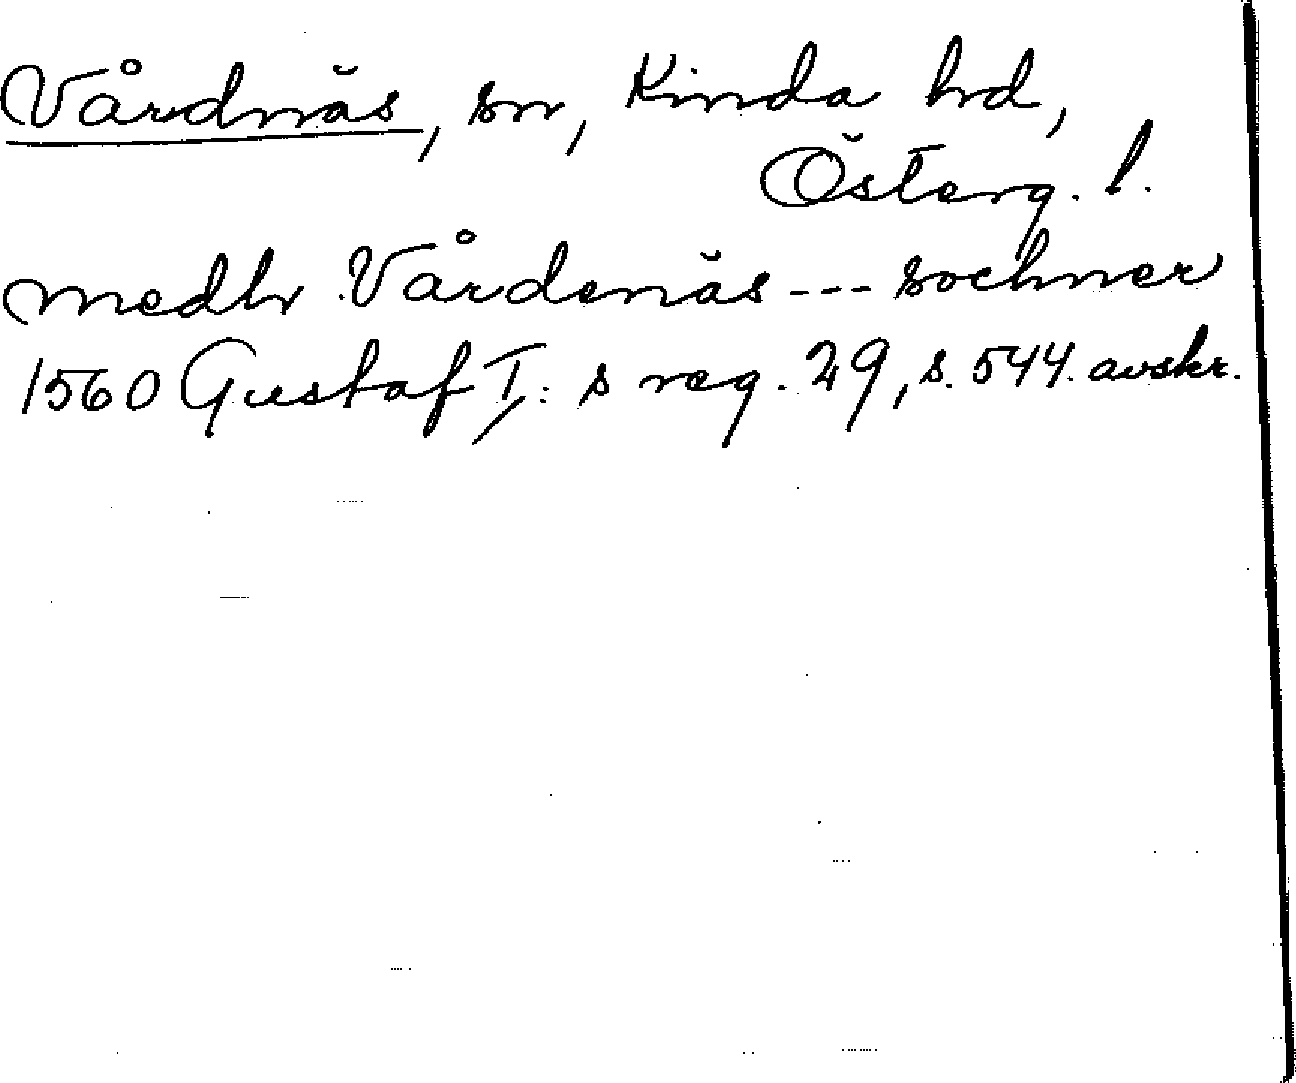 Vårdnäs, sn, Kinda hd,
Österg. l.
medh Vårdenäs --- sochner
1560 Gustaf I:s reg. 29, s. 544. avskr.